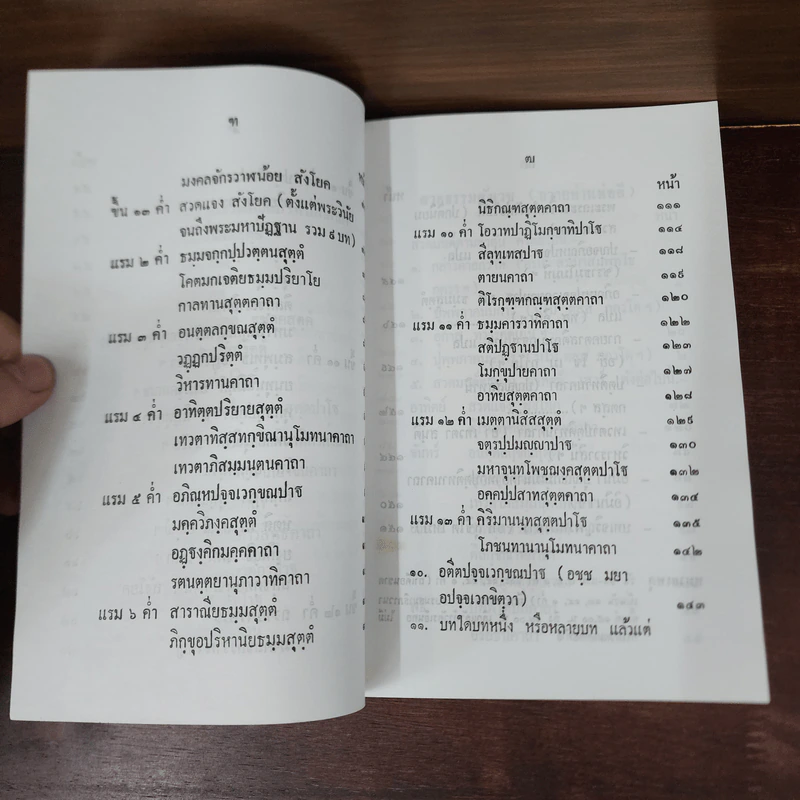 ฑ
มงคลจักรวาฬน้อย สังโยค
ขึ้น ๑๓ ค่ำ สวดแจง สังโยค ( ตั้งแต่พระวินัย
จนถึงพระมหาปัฏฐาน รวม ๙ บท )
แรม ๒ ค่ำ ธมฺมจกฺกปฺปวตฺตนสุตฺตํ
โคตมกเจติยธมฺมปริยาโย
กาลทานสุตฺตคาถา
แรม ๓ ค่ำ อนตฺตลกฺขณสุตฺตํ
วฏฺฏกปริตฺตํ
วิหารทานคาถา
แรม ๔ ค่ำ อาทิตฺตปริยายสุตฺตํ
เทวตาทิสฺสทกฺขิณานุโมทนาคาถา
เทวตาภิสมฺมนฺตนคาถา
แรม ๕ ค่ำ อภิณฺหปจฺจเวกฺขณปาฐ
มคฺควิภงฺคสุตฺตํ
อฏฺฐงฺคิกมคฺคคาถา
รตนตฺตยานุภาวาทิคาถา
แรม ๖ ค่ำ สาราณียธมฺมสุตฺตํ
ภิกฺขุอปริหานิยธมฺมสุตฺตํ
ฒ
หน้า
นิธิกณฺฑสุตฺตคาถา ๑๑๑
แรม ๑๐ ค่ำ โอวาทปาฏิโมกฺขาทิปาโฐ ๑๑๔
สีลุทฺเทสปาฐ ๑๑๘
ตายนคาถา ๑๑๙
ติโรกุฑฺฑกณฺฑสุตฺตคาถา ๑๒๐
แรม ๑๑ ค่ำ ธมฺมคารวาทิคาถา ๑๒๒
สติปฏฺฐานปาโฐ ๑๒๓
โมกฺขุปายคาถา ๑๒๗
อาทิยสุตฺตคาถา ๑๒๘
แรม ๑๒ ค่ำ เมตฺตานิสํสสุตฺตํ ๑๒๙
จตุรปฺปมญฺญาปาฐ ๑๓๐
มหาจุนฺทโพชฺฌงฺคสุตฺตปาโฐ ๑๓๒
อคฺคปฺปสาทสุตฺตคาถา ๑๓๔
แรม ๑๓ ค่ำ คิริมานนฺทสุตฺตปาโฐ ๑๓๕
โภชนทานานุโมทนาคาถา ๑๔๒
๑๐. อตีตปจฺจเวกฺขณปาฐ ( อชฺช มยา
อปจฺจเวกฺขิตฺวา ) ๑๔๓
๑๑. บทใดบทหนึ่ง หรือหลายบท แล้วแต่